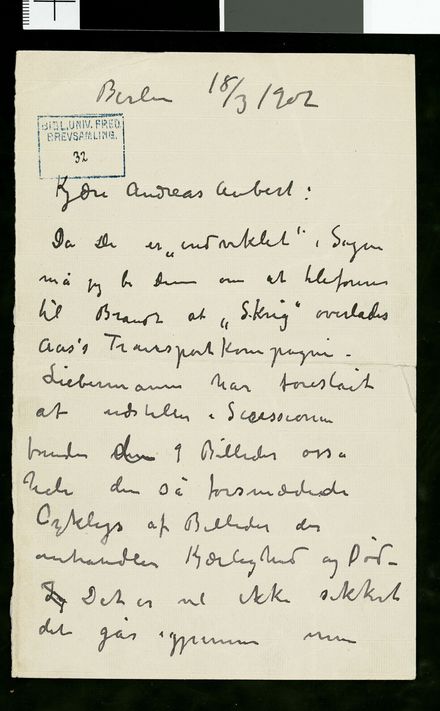 Berlin 18/3 1902
BIBL. UNIV. FRED.
BREVSAMLING.
32
Kjære Andreas Aubert:
Da De er „indviklet" i Sagen
må jeg be Dem om at telefonere
til Brandt at „Skrig" overlades
Aas's Transportkompagni –
Liebermann har foreslåit
at udstille i Secessionen
foruden 9 Billeder også
hele den så forsmædede
Cyklys af Billeder der
omhandler Kjærlighed og Død –
Det er vel ikke sikkert
det gås igjennem men